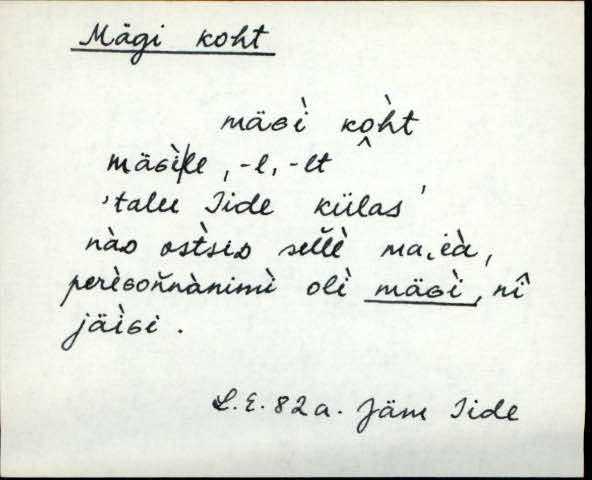 Mägi koht
mäɢì kò͔ht
mäɢìlle, -l, -lt
'talu Iide külas'
nàᴅ ostsìᴅ sellè ma͔ièà,
perèɢoňnànimì olì mäɢì, nî
jäìɢi.
L.E. 82a. Jäm Iide